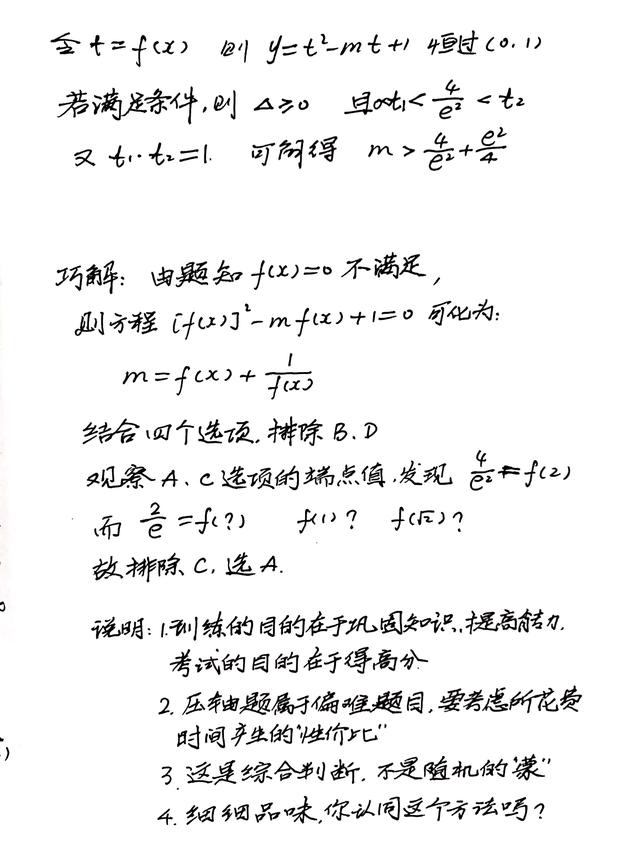 令 t=f(x) 则 y=t²-mt+1 恒过(0,1)
若满足条件,则 Δ≥0 且0<t₁<4/e²<t₂
又 t₁·t₂=1. 可解得 m>4/e²+e²/4
巧解: 由题知 f(x)=0 不满足,
则方程 [f(x)]²-mf(x)+1=0 可化为:
m=f(x)+1/f(x)
结合四个选项,排除 B、D
观察 A、C 选项的端点值,发现 4/e²=f(2)
而 2/e=f(?) f(1)? f(√2)?
故排除 C,选 A.
说明:1.训练的目的在于巩固知识,提高能力,
考试的目的在于得高分
2.压轴题属于偏难题目,要考虑所花费
时间产生的"性价比"
3.这是综合判断,不是随机的"蒙"
4.细细品味,你认同这个方法吗?